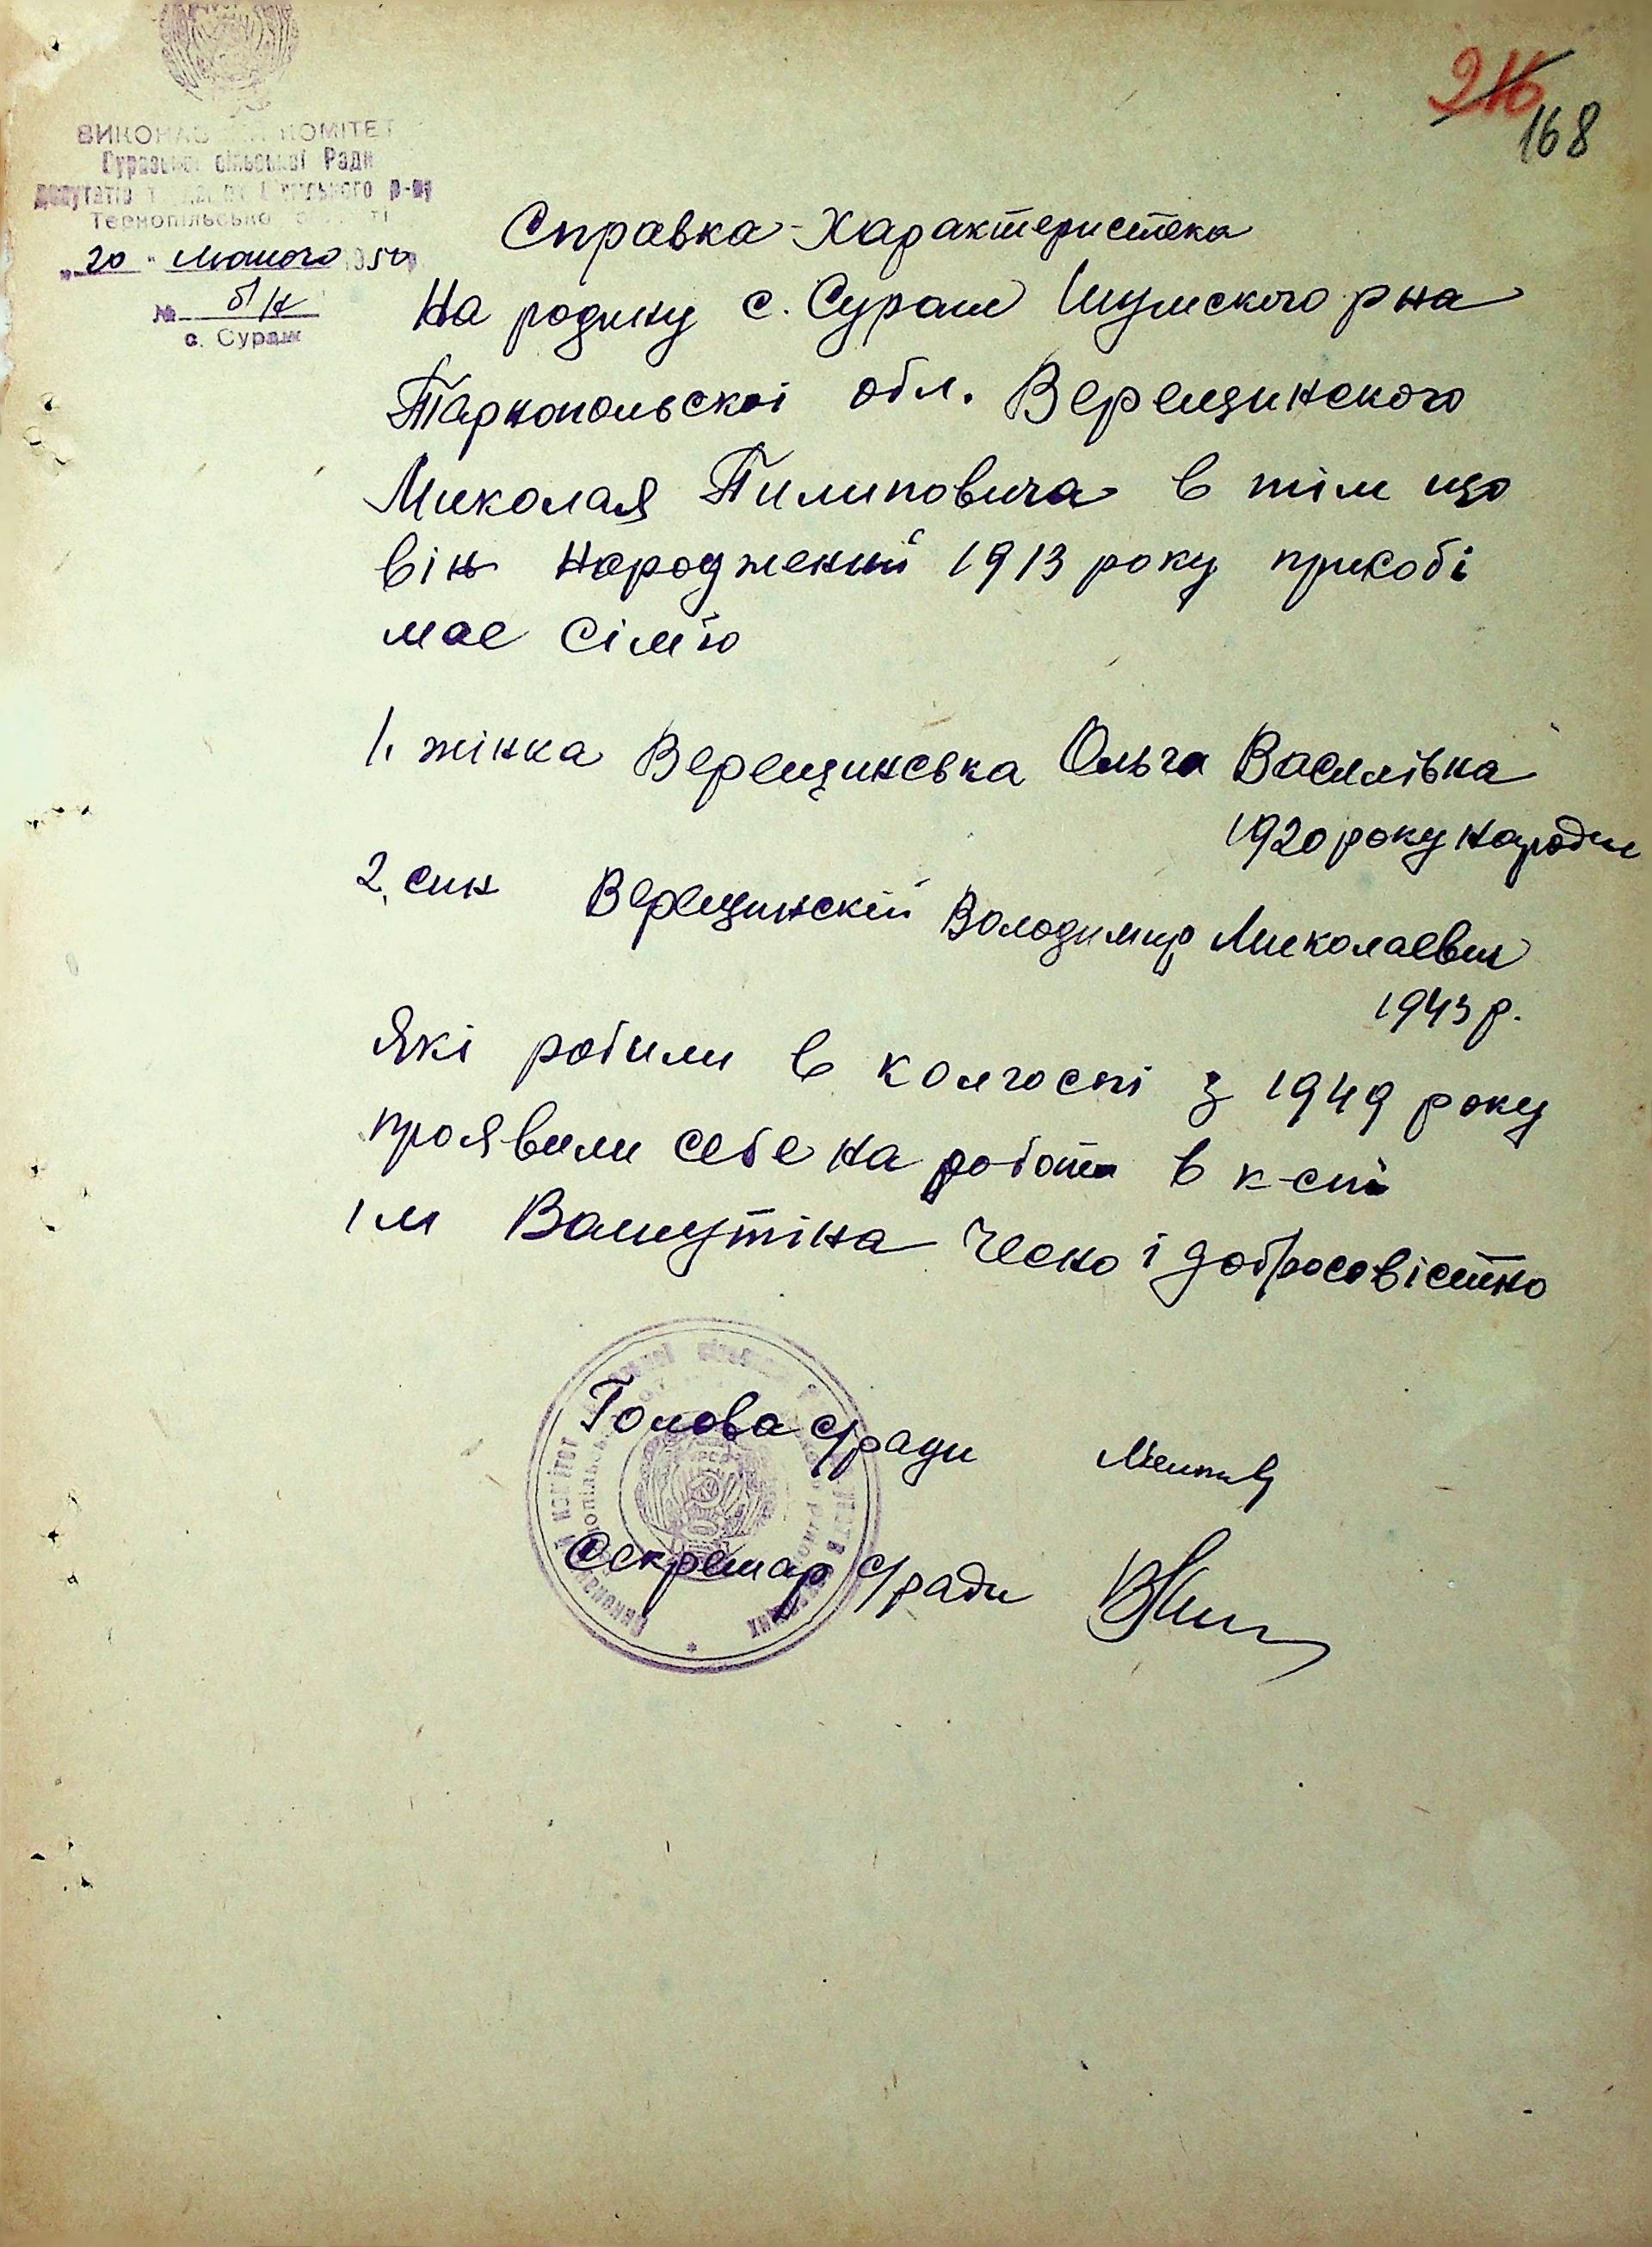 216
168
ВИКОНАВ КОМІТЕТ
Суразької сільської Ради
депутатів р-ну
Тернопільсько
"20" Лютого 1950р.
№ б/н
с. Сураж
Справка-Характеристека
На родину с. Сураж Шумского рна
Тарнопольскоі обл. Верещинского
Миколая Пилиповича в тім що
він народжений 1913 року присобі
має сім'ю
1. жінка Верещинська Ольга Василівна
1920 року народж
2. син Верещинскій Володимир Миколаевич
1943 р.
Які робили в колгоспі з 1949 року
проявили себе на роботи в к-спі
ім Ватутіна чесно і добросовістно
Голова с/ради
Секретар с/ради